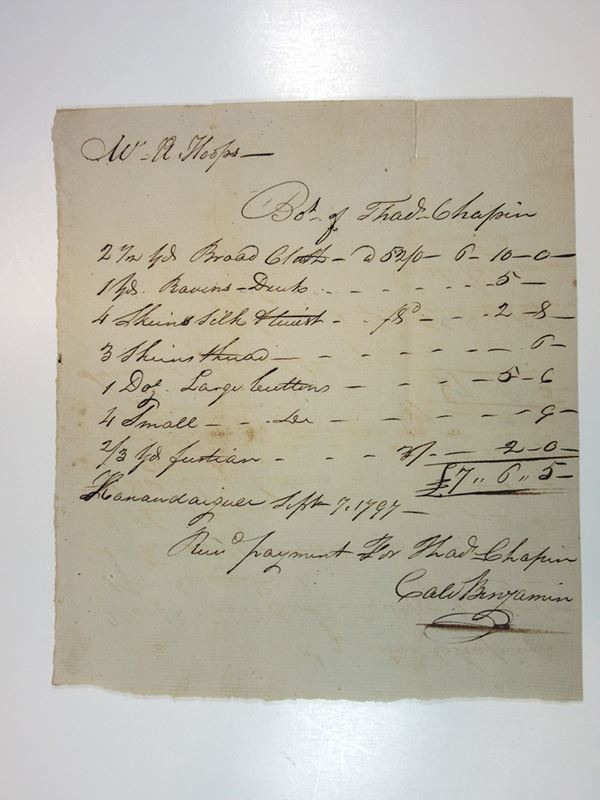 Mr. R Hoops —
Bot. of Thads. Chapin
2 1/2 yd Broad Cloth — a 52/0 — 6 — 10 — 0 —
1 yd. Ravens-Duck - - - - - - 5 —
4 Skeins Silk & twist - - /8d — - - 2 — 8 —
3 Skeins thread — - - - - - - 6 —
1 Doz. Large buttons — - - - - 5 — 6
4 Small — - - Do — - - - - - 9 —
2/3 yd fustian - - - - 3/. — - 2 — 0 —
£7 " 6 " 5 —
Kanandaigua Sept. 7. 1797 —
Recd. payment For Thads. Chapin
Calv Benjamin